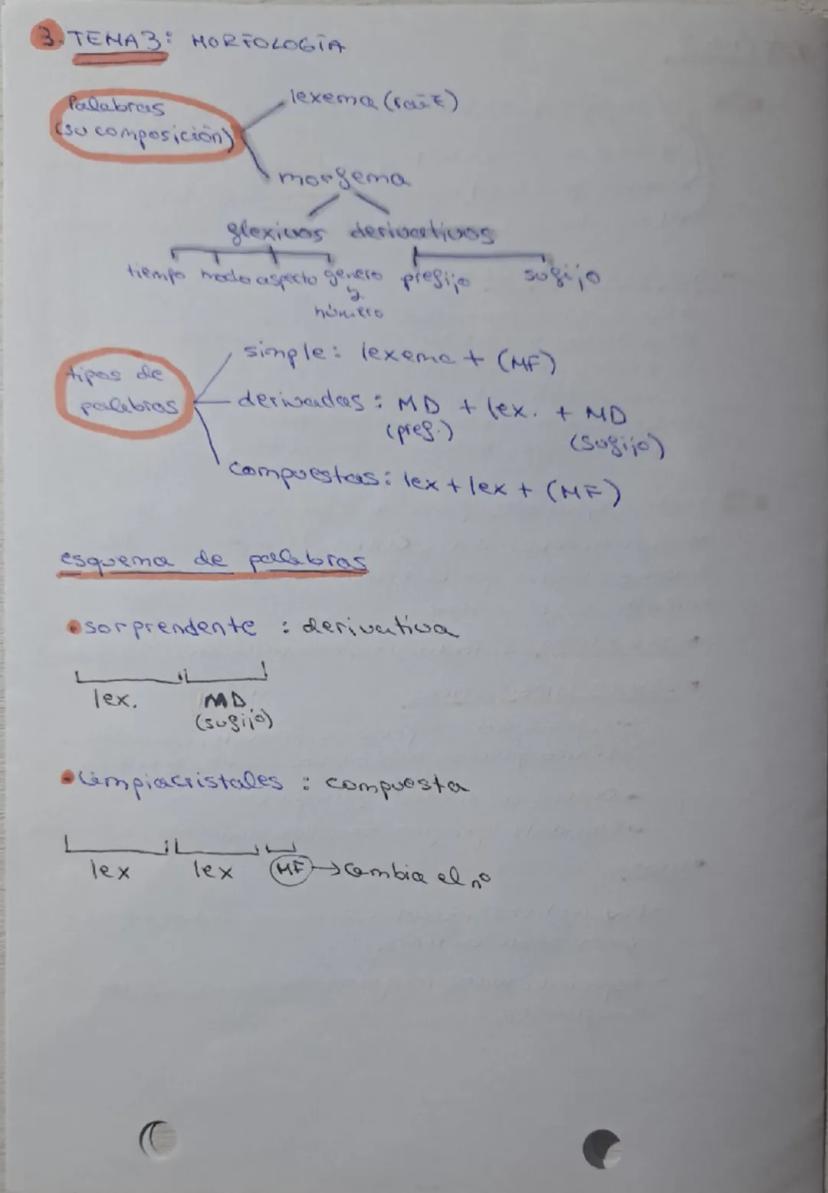 3. TEMA 3: MORFOLOGÍA
Palabras
(su composición)
lexema (raíz)
morfema
flexivos derivativos
tiempo modo aspecto género
y
número
prefijo sufijo
tipos de
palabras
simple: lexema + (MF)
derivadas: MD + lex. + MD
(pref.) (sufijo)
compuestas: lex + lex + (MF)
esquema de palabras
•sorprendente : derivativa
lex. MD
(sufijo)
•Limpiacristales : compuesta
lex lex MF → cambia el nº